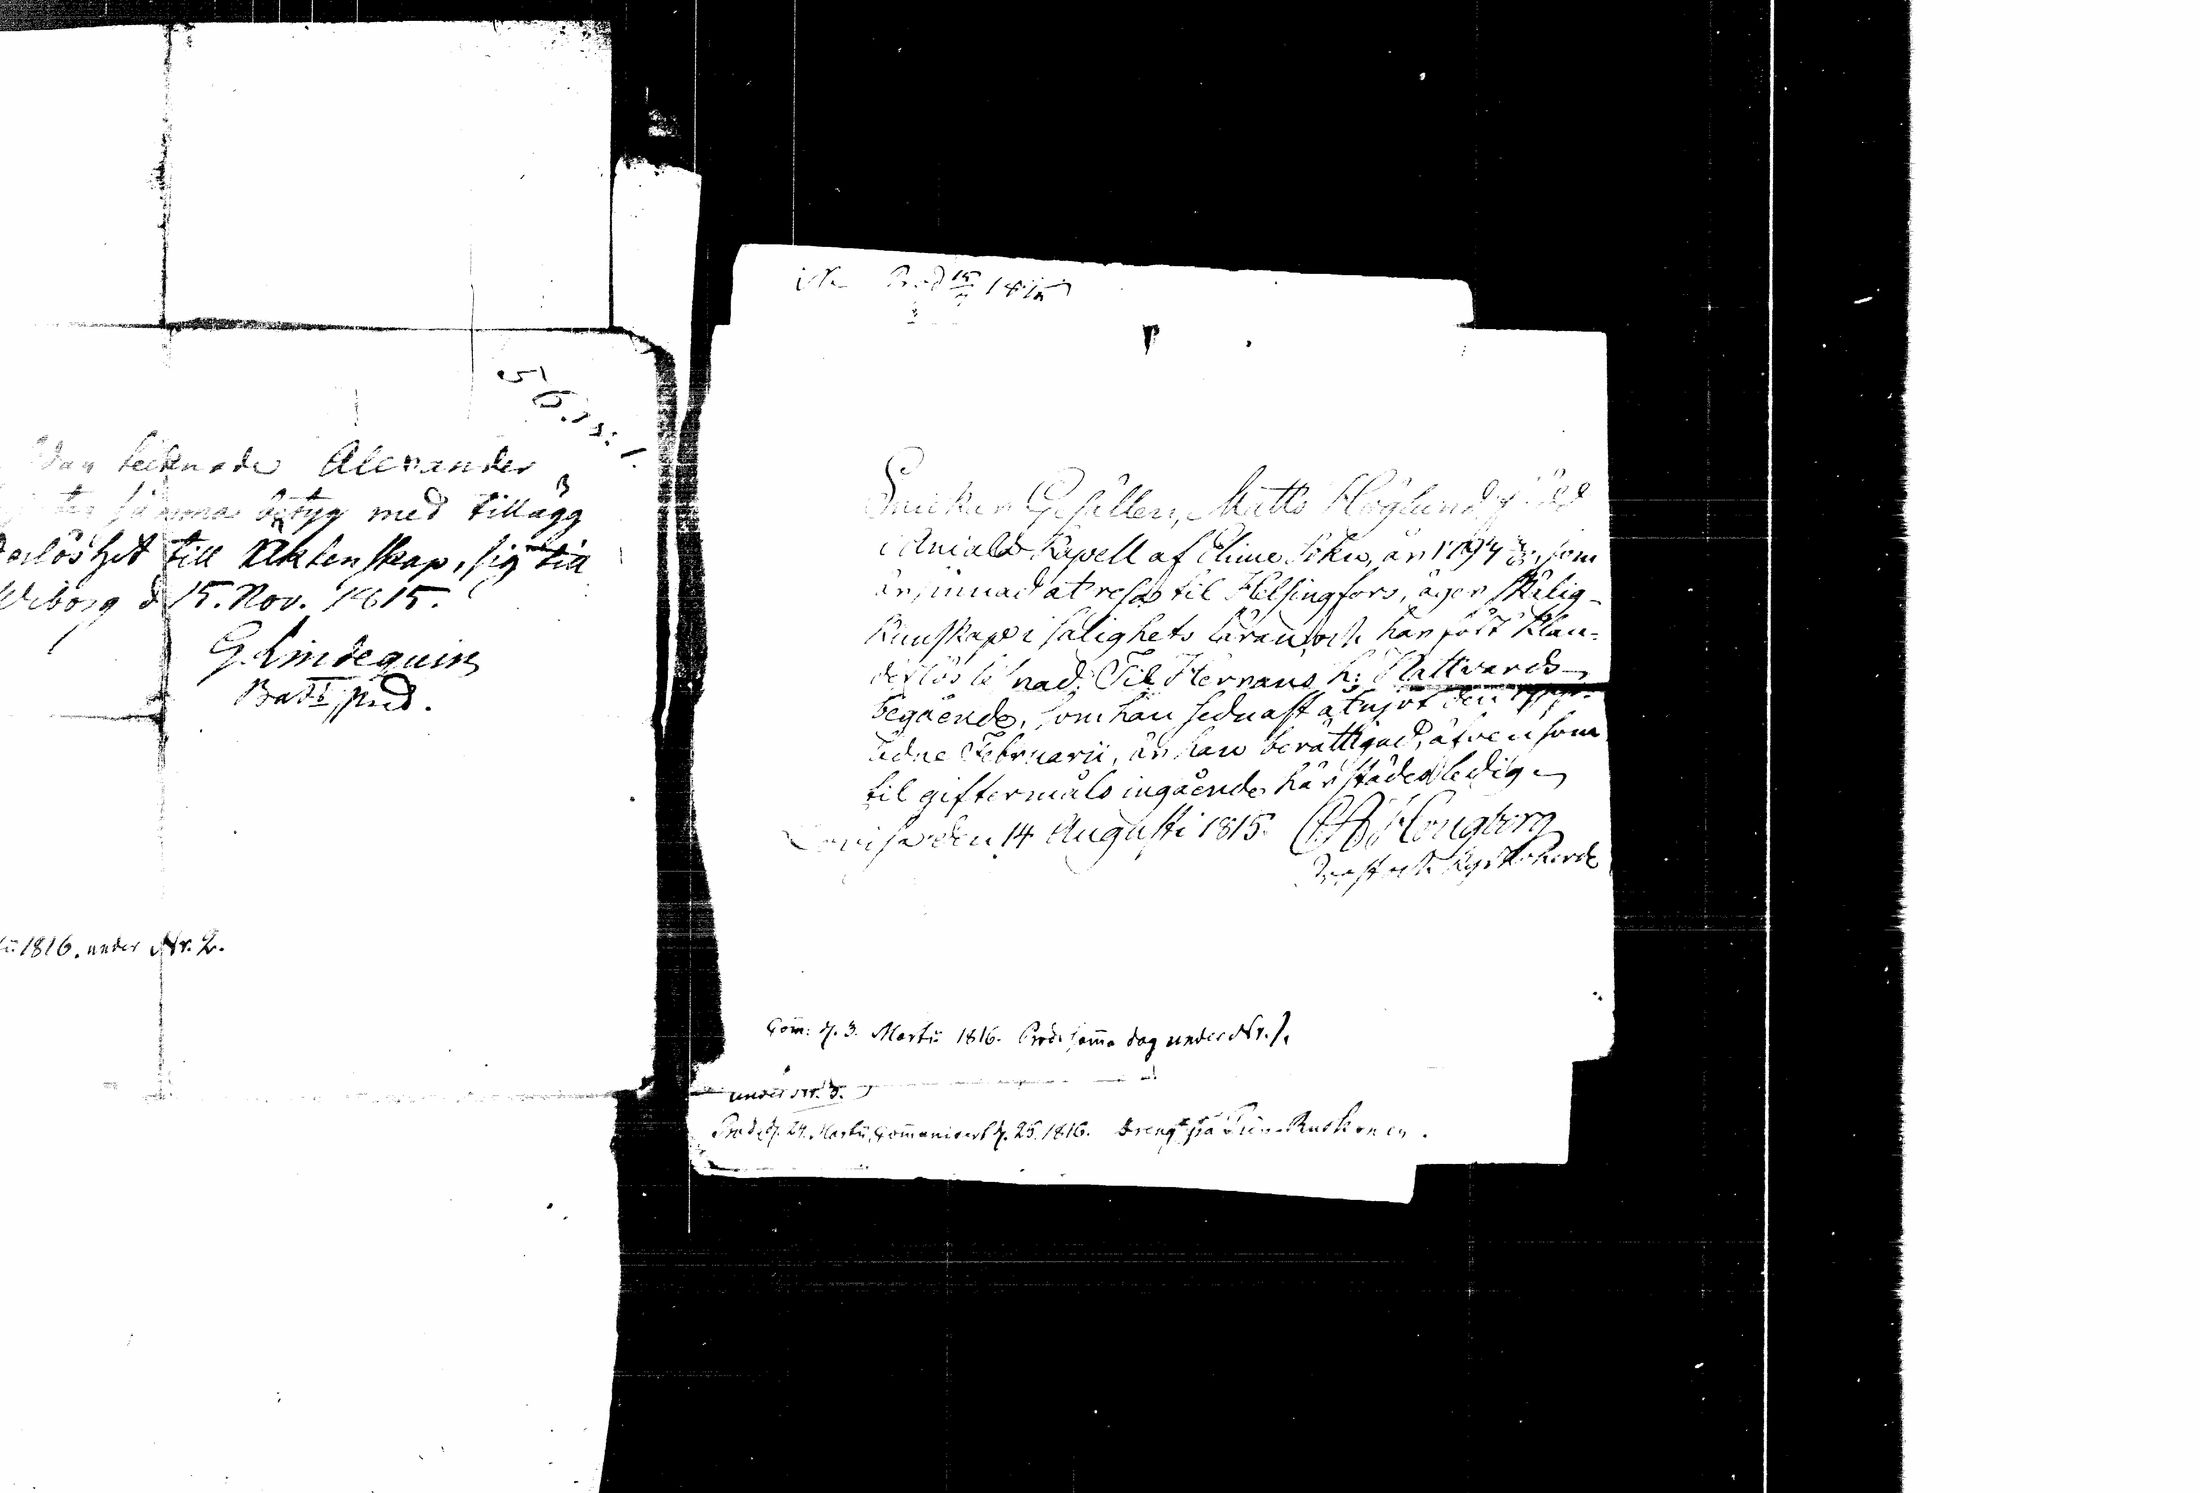 tecknade Alexander
samma betyg med tillägg
derlöshet till Äktenskap, sig till
Wiborg d 15. Nov. 1815.
G. Lindequist
Bat: pred.
1816. under Nr. 2.
Prod 15
Snickar Gesällen, Matts Höglund, född
i Aniala Kapell af Elime Sokn, år 1794 som
är sinnad at resa til Helsingfors, äger skälig
kunskap i salighets läran, och har fört klan-
derlös lefnad. Til Herrans h: Nattvards
begående, som han sednast åtnjöt den
sidne Februarii, är han berättigad, äfven som
til giftermåls ingående härstädes ledig
Lovisa den 14 Augusti 1815.
Prost och Kyrkoherde
Com: d. 3. Martii 1816. Prod: samma dag under Nr. 1.
under Nr. 3.
Prod. d. 24. Martii, Communicerat d. 25. 1816. Dreng